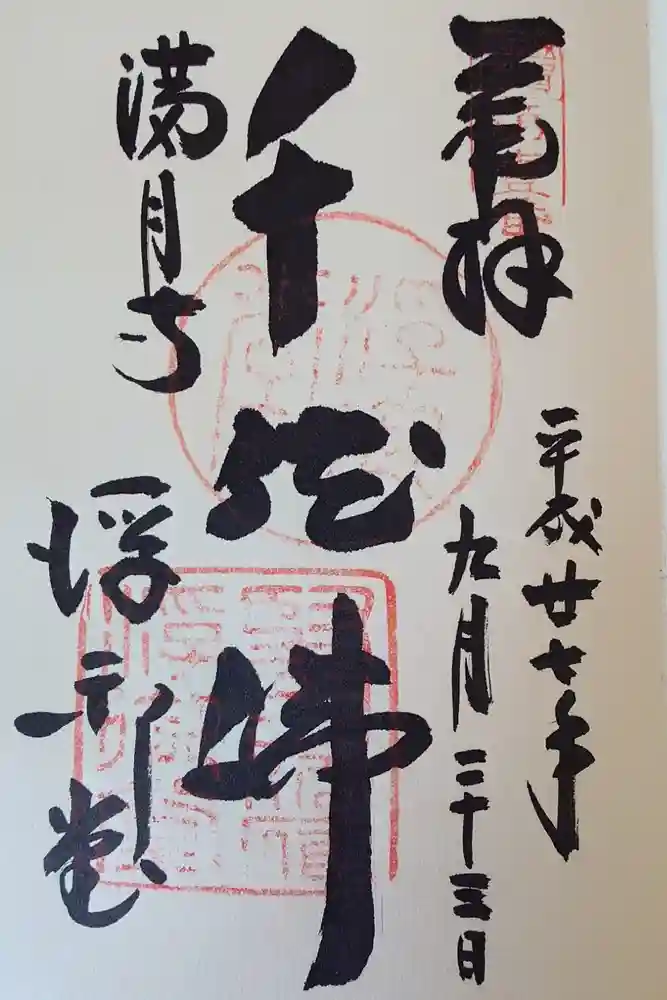 奉拝
平成廿七年
九月二十三日
千体佛
満月寺
浮御堂